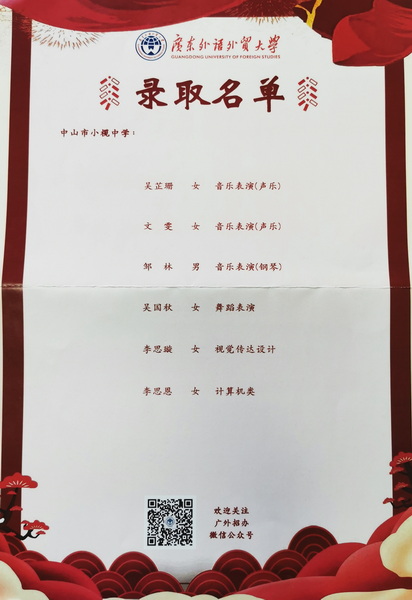 廣東外語外貿大學
GUANGDONG UNIVERSITY OF FOREIGN STUDIES
录取名单
中山市小榄中学：
吴芷珊 女 音乐表演(声乐)
文雯 女 音乐表演(声乐)
邹林 男 音乐表演(钢琴)
吴国秋 女 舞蹈表演
李思璇 女 视觉传达设计
李思恩 女 计算机类
欢迎关注
广外招办
微信公众号